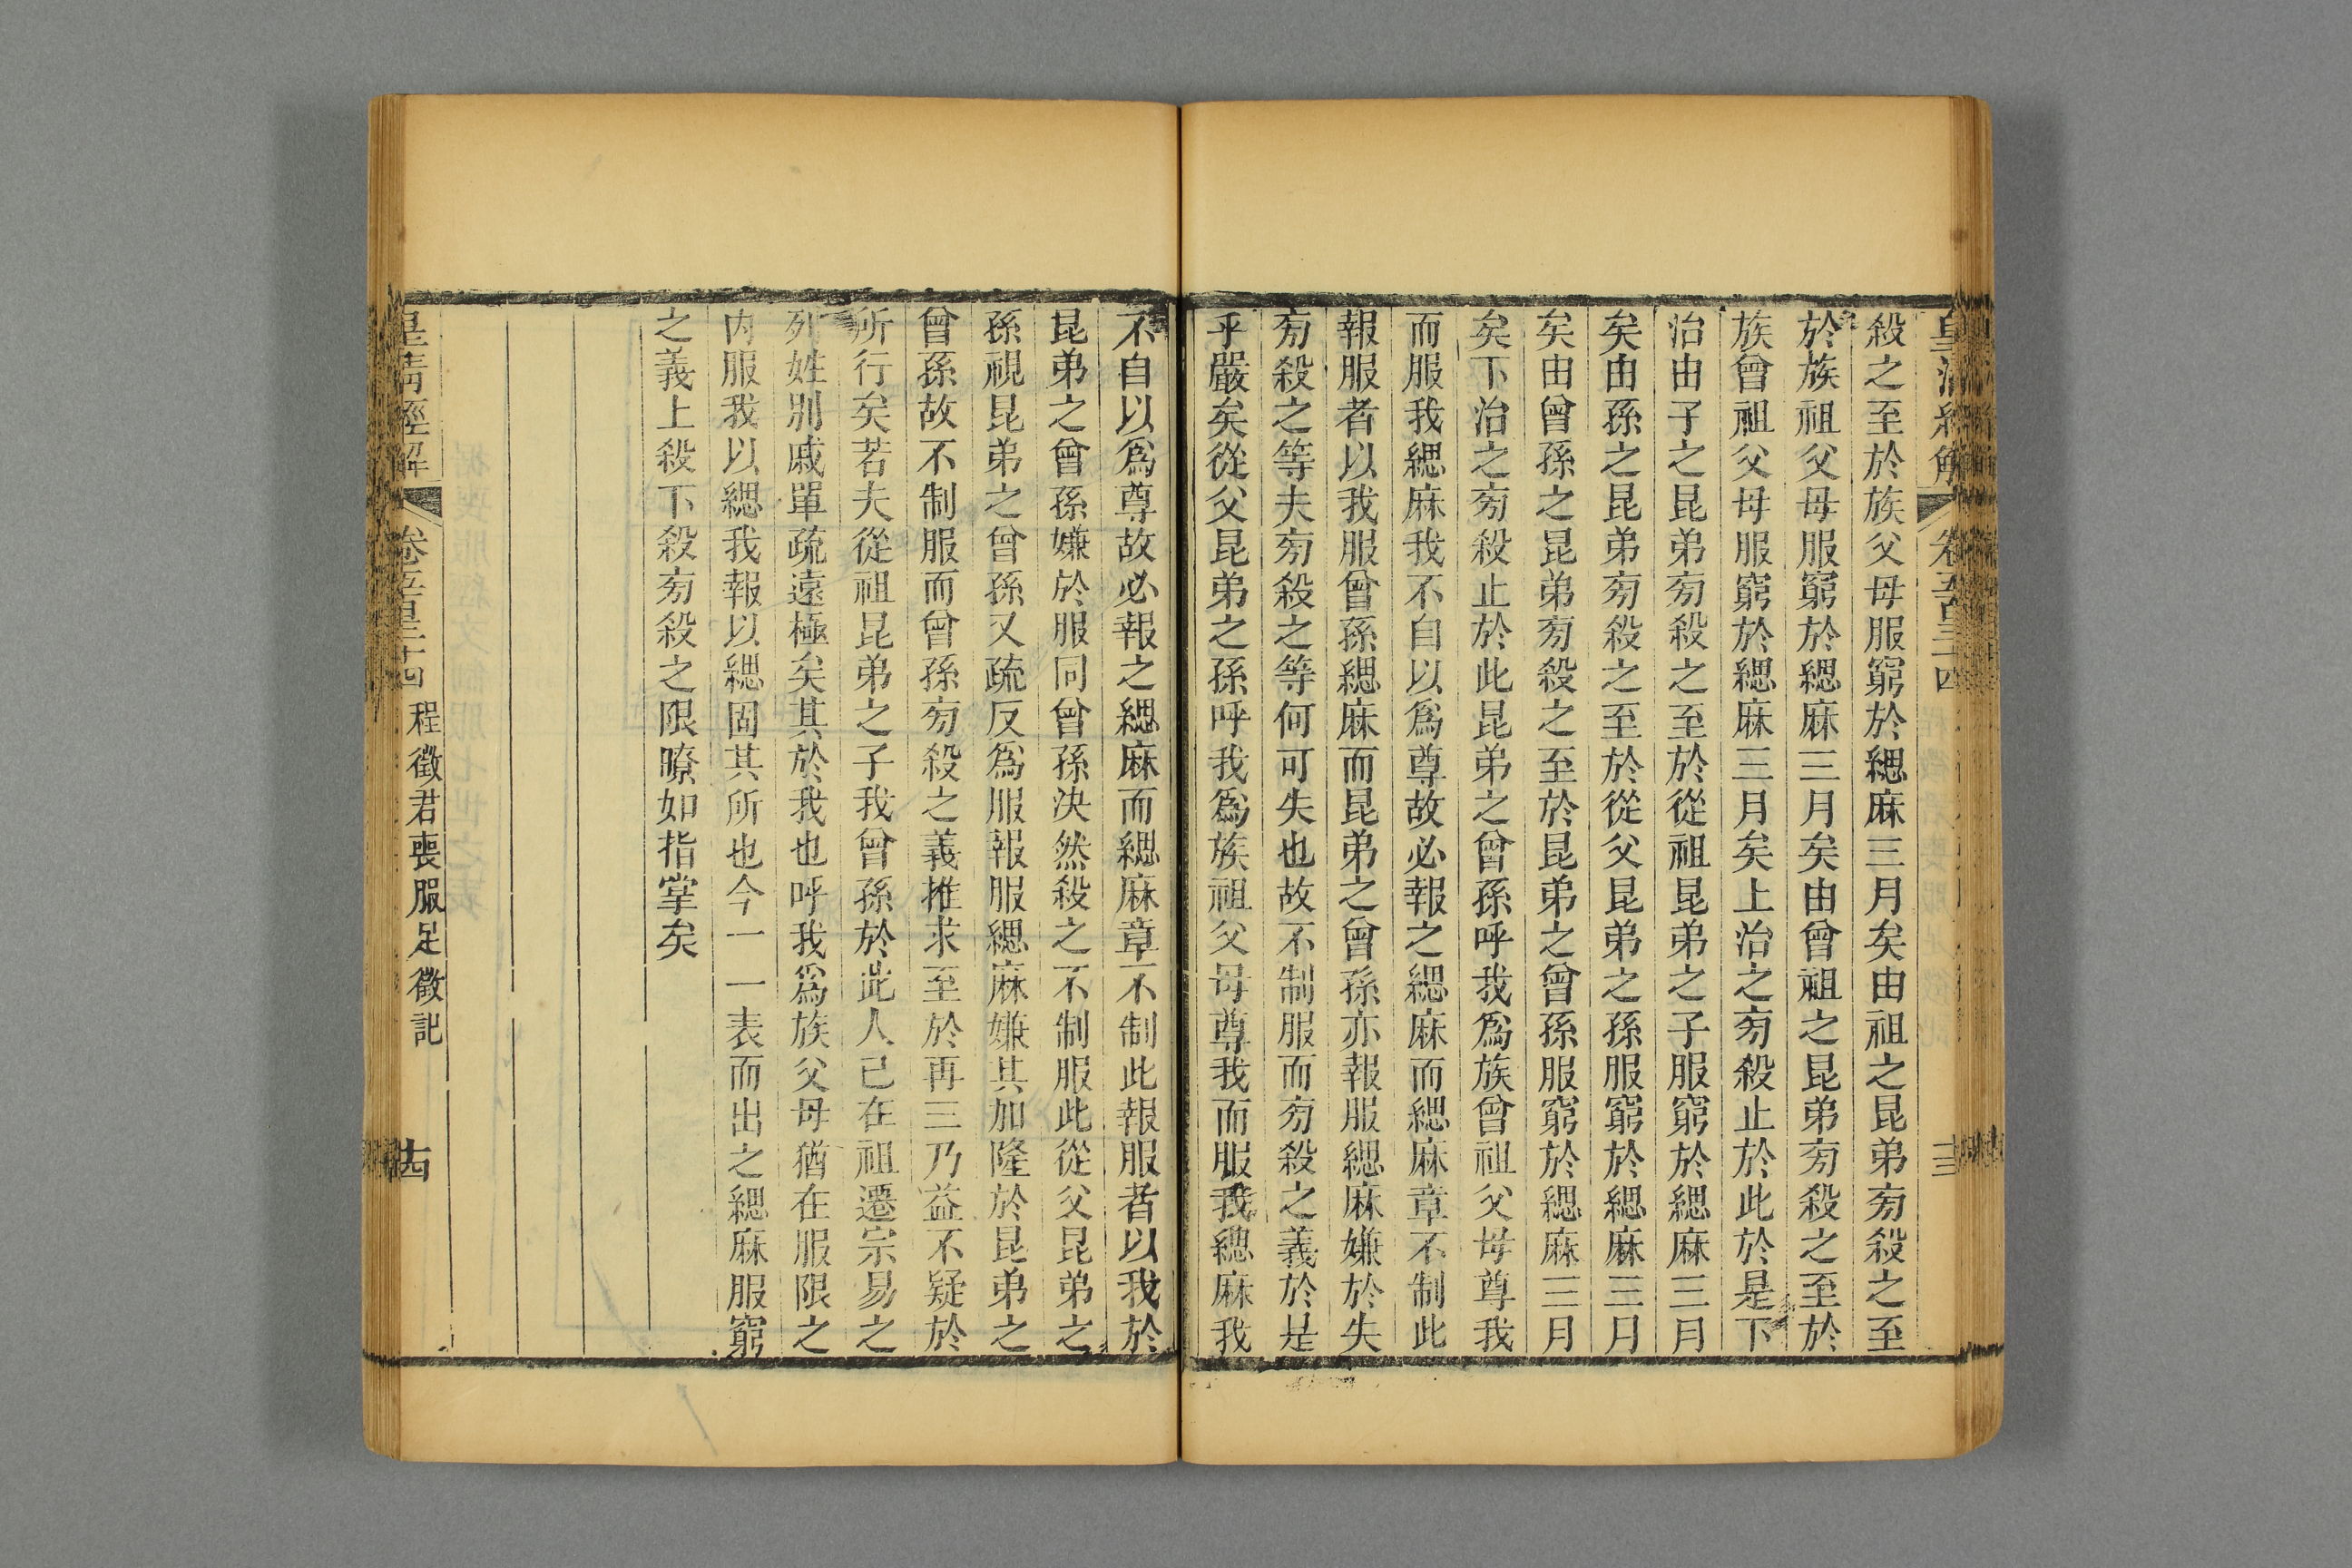 皇清經解 卷五百三十四 十三
殺之至於族父母服窮於緦麻三月矣由祖之昆弟㫄殺之至
於族祖父母服窮於緦麻三月矣由曾祖之昆弟㫄殺之至於
族曾祖父母服窮於緦麻三月矣上治之㫄殺止於此於是下
治由子之昆弟㫄殺之至於從祖昆弟之子服窮於緦麻三月
矣由孫之昆弟㫄殺之至於從父昆弟之孫服窮於緦麻三月
矣由曾孫之昆弟㫄殺之至於昆弟之曾孫服窮於緦麻三月
矣下治之㫄殺止於此昆弟之曾孫呼我爲族曾祖父母尊我
而服我緦麻我不自以爲尊故必報之緦麻而緦麻章不制此
報服者以我服曾孫緦麻而昆弟之曾孫亦報服緦麻嫌於失
㫄殺之等夫㫄殺之等何可失也故不制服而㫄殺之義於是
乎嚴矣從父昆弟之孫呼我爲族祖父母尊我而服我緦麻我
不自以爲尊故必報之緦麻而緦麻章不制此報服者以我於
昆弟之曾孫嫌於服同曾孫決然殺之不制服此從父昆弟之
孫視昆弟之曾孫又疏反爲服報服緦麻嫌其加隆於昆弟之
曾孫故不制服而曾孫㫄殺之義推求至於再三乃益不疑於
所行矣若夫從祖昆弟之子我曾孫於此人已在祖遷宗易之
列姓別戚單疏遠極矣其於我也呼我爲族父母猶在服限之
內服我以緦我報以緦固其所也今一一表而出之緦麻服窮
之義上殺下殺㫄殺之限瞭如指掌矣
皇清經解 卷五百三十四 程徵君喪服足徵記 十四